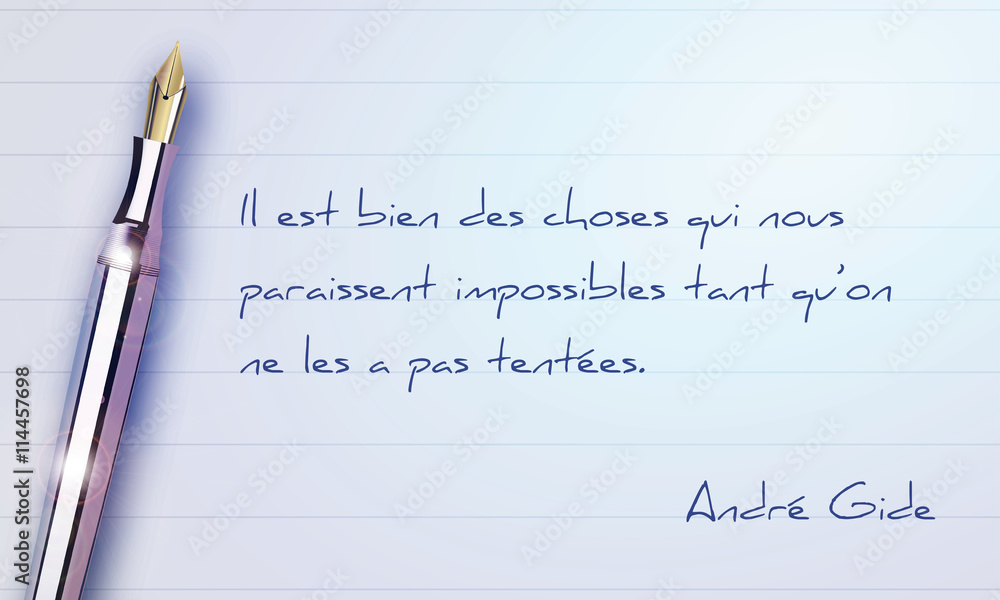 Il est bien des choses qui nous
paraissent impossibles tant qu'on
ne les a pas tentées.
André Gide
Adobe Stock | #114457698